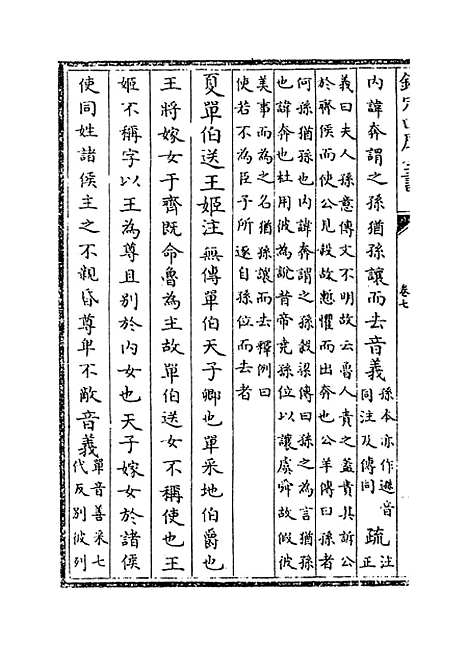 欽定四庫全書
卷七
內諱奔謂之孫猶孫讓而去音義孫本亦作遜音注同注及傳同疏正
義曰夫人孫意傳文不明故云魯人責之蓋責其訴公
於齊侯而使公見殺故慙懼而出奔也公羊傳曰孫者
何孫猶孫也內諱奔謂之孫穀梁傳曰孫之為言猶孫
也諱奔也杜用彼為說昔帝堯孫位以讓虞舜故假彼
美事而為之名猶孫讓而去釋例曰
使若不為臣子所逐自孫位而去者
夏單伯送王姬注無傳單伯天子卿也單采地伯爵也
王將嫁女于齊既命魯為主故單伯送女不稱使也王
姬不稱字以王為尊且別於內女也天子嫁女於諸侯
使同姓諸侯主之不親昏尊卑不敵音義單音善采七代反別彼列